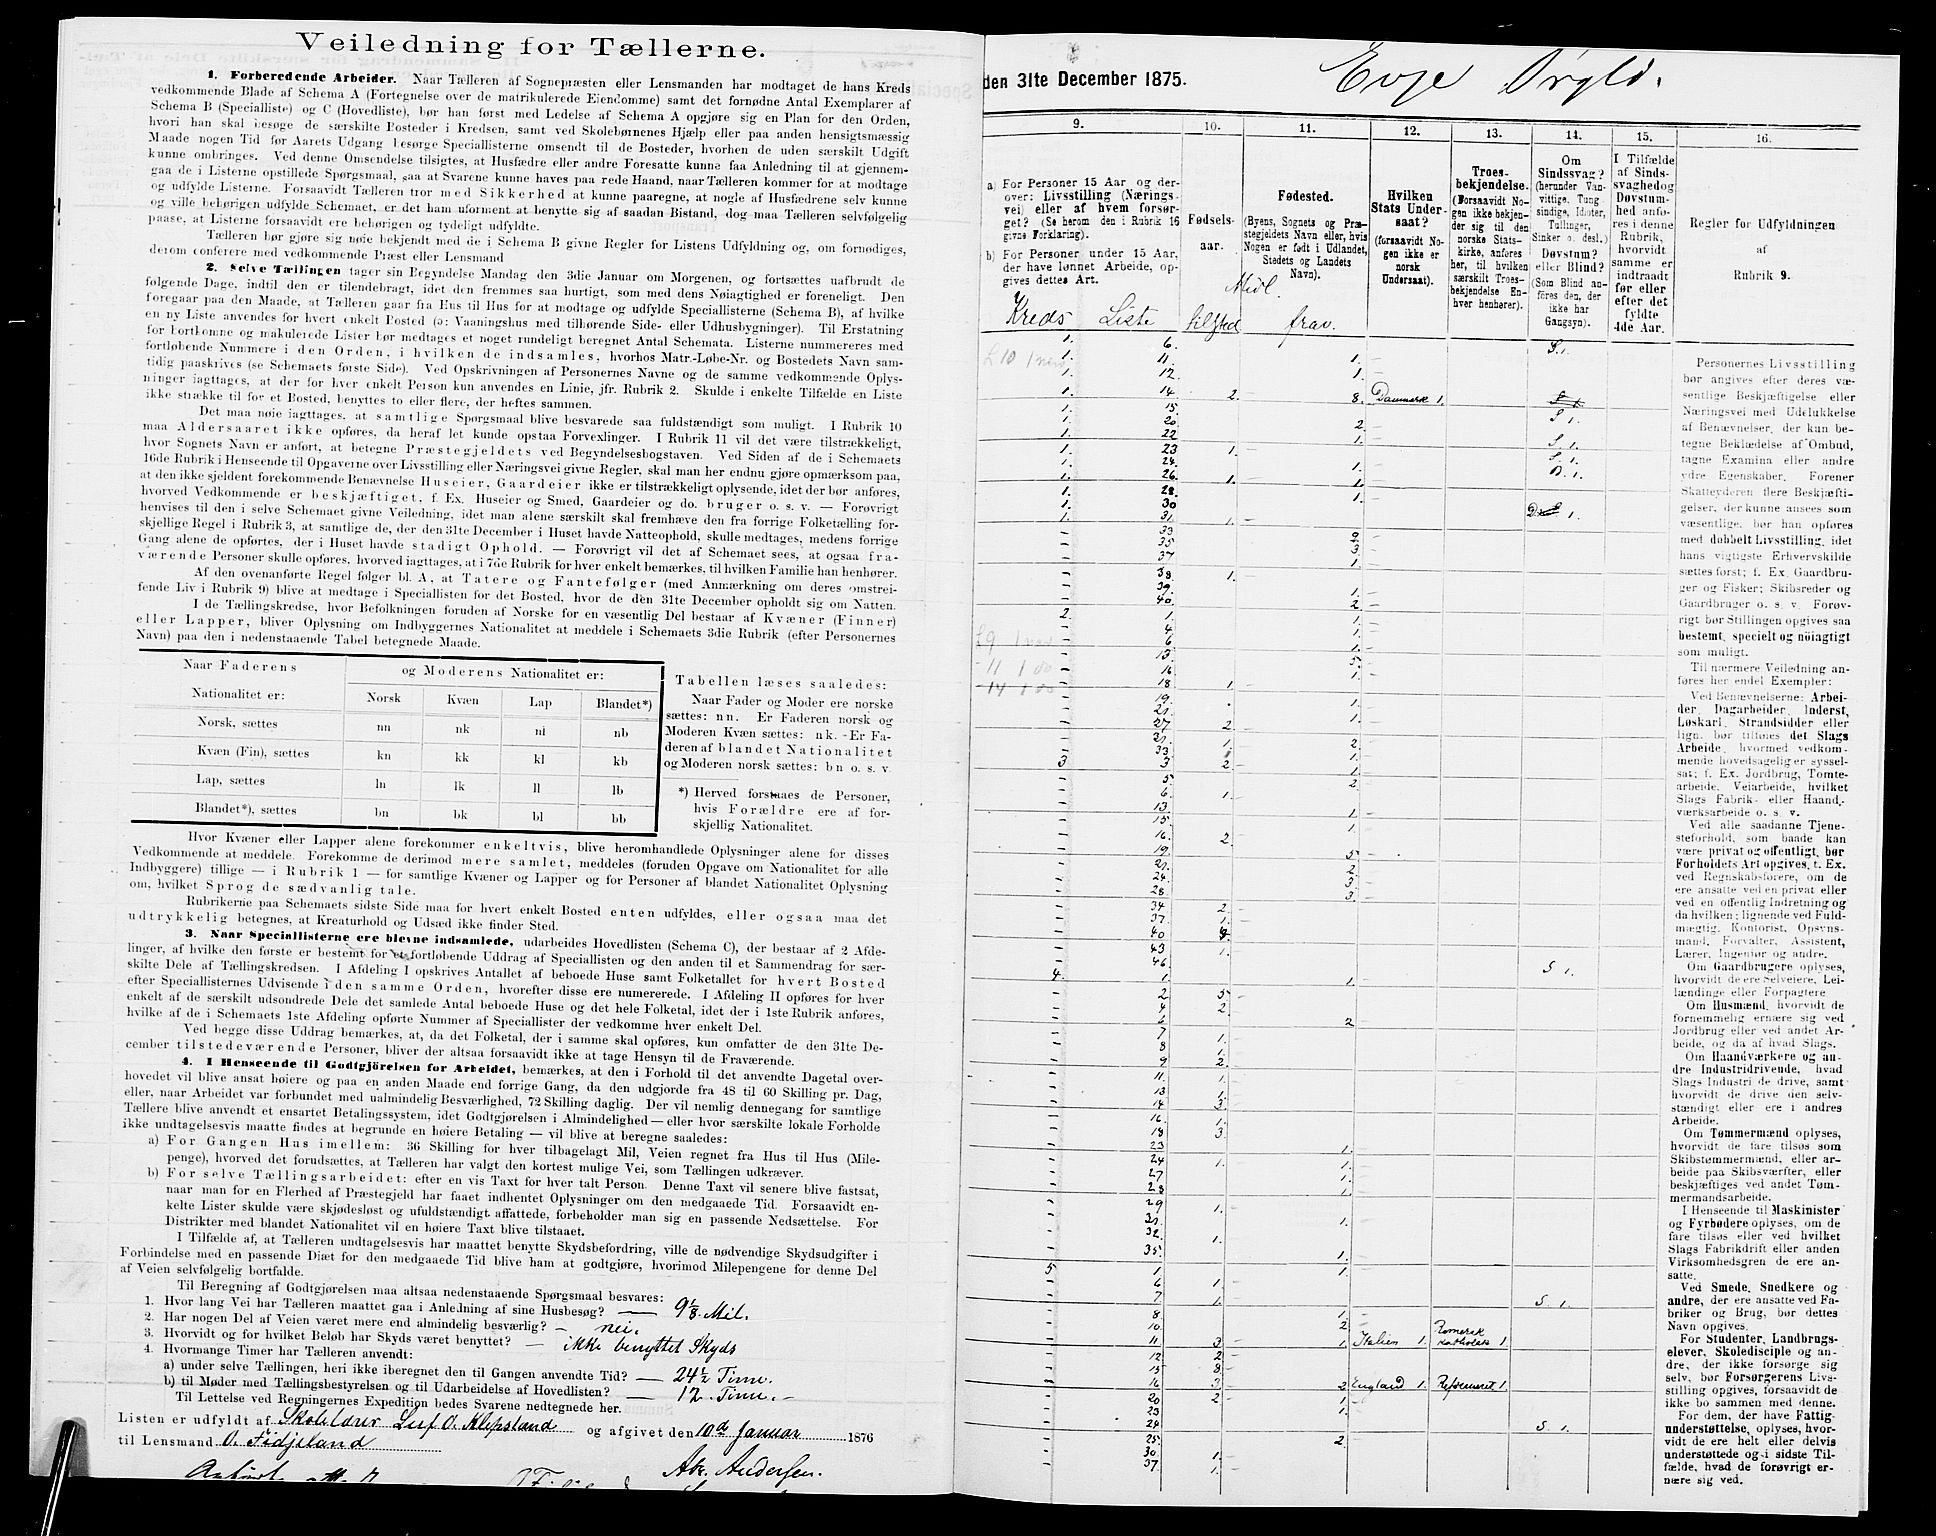 Veiledning for Tællerne.
1. Forberedende Arbeider. Naar Tælleren af Sognepræsten eller Lensmanden har modtaget de hans Kreds
vedkommende Blade af Schema A (Fortegnelse over de matrikulerede Eiendomme) samt det fornødne Antal Exemplarer af
Schema B (Specialliste) og C (Hovedliste), bør han først med Ledelse af Schema A opgjøre sig en Plan for den Orden,
hvori han skal besøge de særskilte Bosteder i Kredsen, samt ved Skolebørnenes Hjælp eller paa anden hensigtsmæssig
Maade nogen Tid før Aarets Udgang besørge Speciallisterne omsendt til de Bosteder, hvorhen de uden særskilt Udgift
kunne ombringes. Ved denne Omsendelse tilsigtes, at Husfædre eller andre Foresatte kunne faa Anledning til at gjennem-
gaa de i Listerne opstillede Spørgsmaal, saa at Svarene kunne haves paa rede Haand, naar Tælleren kommer for at modtage
og udfylde Listerne. Forsaavidt Tælleren tror med Sikkerhed at kunne paaregne, at nogle af Husfædrene selv kunne
og ville behørigen udfylde Schemaet, er det ham uforment at benytte sig af saadan Bistand, dog maa Tælleren selvfølgelig
paase, at Listerne forsaavidt ere behørigen og tydeligt udfyldte.
Tælleren bør gjøre sig nøie bekjendt med de i Schema B givne Regler for Listens Udfyldning og, om fornødiges,
derom conferere med vedkommende Præst eller Lensmand
2. Selve Tællingen tager sin Begyndelse Mandag den 3die Januar om Morgenen, og fortsættes uafbrudt de
følgende Dage, indtil den er tilendebragt, idet den fremmes saa hurtigt, som med dens Nøiagtighed er foreneligt. Den
foregaar paa den Maade, at Tælleren gaar fra Hus til Hus for at modtage og udfylde Speciallisterne (Schema B), af hvilke
en ny Liste anvendes for hvert enkelt Bosted (ɔ: Vaaningshus med tilhørende Side- eller Udhusbygninger). Til Erstatning
for bortkomne og makulerede Lister bør medtages et noget rundeligt beregnet Antal Schemata. Listerne nummereres med
fortløbende Nummere i den Orden, i hvilken de indsamles, hvorhos Matr.-Løbe-Nr. og Bostedets Navn sam-
tidig paaskrives (se Schemaets første Side). Ved Opskrivningen af Personernes Navne og de samme vedkommende Oplys-
ninger iagttages, at der for hver enkelt Person kun anvendes en Linie, jfr. Rubrik 2. Skulde i enkelte Tilfælde en Liste
ikke strække til for et Bosted, benyttes to eller flere, der heftes sammen.
Det maa nøie iagttages, at samtlige Spørgsmaal blive besvarede saa fuldstændigt som muligt. I Rubrik 10
maa Aldersaaret ikke opføres, da heraf let kunde opstaa Forvexlinger. I Rubrik 11 vil det være tilstrækkeligt,
hvor Sognets Navn er anført, at betegne Præstegjeldets ved Begyndelsesbogstaven. Ved Siden af de i Schemaets
16de Rubrik i Henseende til Opgaverne over Livsstilling eller Næringsvei givne Regler, skal man her endnu gjøre opmærksom paa,
at den ikke sjeldent forekommende Benævnelse Huseier, Gaardeier ikke er tilstrækkeligt oplysende, idet der bør anføres,
hvorved Vedkommende er beskjæftiget, f. Ex. Huseier og Smed, Gaardeier og do. bruger o. s. v. — Forøvrigt
henvises til den i selve Schemaet givne Veiledning, idet man alene særskilt skal fremhæve den fra forrige Folketælling for-
skjellige Regel i Rubrik 3, at samtlige de, der den 31te December i Huset havde Natteophold, skulle medtages, medens forrige
Gang alene de opførtes, der i Huset havde stadigt Ophold. — Forøvrigt vil det af Schemaet sees, at ogsaa fra-
værende Personer skulle opføres, hvorved iagttages, at i 7de Rubrik for hver enkelt bemærkes, til hvilken Familie han henhører.
Af den ovenanførte Regel følger bl. A, at Tatere og Fantefølger (med Anmærkning om deres omstrei-
fende Liv i Rubrik 9) blive at medtage i Speciallisten for det Bosted, hvor de den 31te December opholdt sig om Natten.
I de Tællingskredse, hvor Befolkningen foruden af Norske for en væsentlig Del bestaar af Kvæner (Finner)
eller Lapper, bliver Oplysning om Indbyggernes Nationalitet at meddele i Schemaets 3die Rubrik (efter Personernes
Navn) paa den i nedenstaaende Tabel betegnede Maade.
Naar Faderens og Moderens Nationalitet er:
Nationalitet er: Norsk Kvæn Lap Blandet*)
Norsk, sættes nn nk nl nb
Kvæn (Fin), sættes kn kk kl kb
Lap, sættes ln lk ll lb
Blandet*), sættes bn bk bl bb
Tabellen læses saaledes:
Naar Fader og Moder ere norske
sættes: nn. Er Faderen norsk og
Moderen Kvæn sættes: nk. -Er Fa-
deren af blandet Nationalitet
og Moderen norsk sættes: bn o. s. v.
*) Herved forstaaes de Personer,
hvis Forældre ere af for-
skjellig Nationalitet.
Hvor Kvæner eller Lapper alene forekommer enkeltvis, blive heromhandlede Oplysninger alene for disses
Vedkommende at meddele. Forekomme de derimod mere samlet, meddeles (foruden Opgave om Nationalitet for alle
Indbyggere) tillige — i Rubrik 1 — for samtlige Kvæner og Lapper og for Personer af blandet Nationalitet Oplysning
om, hvilket Sprog de sædvanlig tale.
Rubrikerne paa Schemaets sidste Side maa for hvert enkelt Bosted enten udfyldes, eller ogsaa maa det
udtrykkelig betegnes, at Kreaturhold og Udsæd ikke finder Sted.
3. Naar Speciallisterne ere blevne indsamlede, udarbeides Hovedlisten (Schema C), der bestaar af 2 Afde-
linger, af hvilke den første er bestemt for et fortløbende Uddrag af Speciallisten og den anden til et Sammendrag for sær-
skilte Dele af Tællingskredsen. I Afdeling I opskrives Antallet af beboede Huse samt Folketallet for hvert Bosted
efter Speciallisternes Udvisende i den samme Orden, hvorefter disse ere numererede. I Afdeling II opføres for hver
enkelt af de særskilt udsondrede Dele det samlede Antal beboede Huse og det hele Folketal, idet der i 1ste Rubrik anføres,
hvilke af de i Schemaets 1ste Afdeling opførte Nummer af Speciallister der vedkomme hver enkelt Del.
Ved begge disse Uddrag bemærkes, at, da det Folketal, der i samme skal opføres, kun omfatter de den 31te De-
cember tilstedeværende Personer, bliver der altsaa forsaavidt ikke at tage Hensyn til de Fraværende.
4. I Henseende til Godtgjörelsen for Arbeidet, bemærkes, at den i Forhold til det anvendte Dagetal over-
hovedet vil blive ansat høiere og paa en anden Maade end forrige Gang, da den udgjorde fra 48 til 60 Skilling pr. Dag,
eller, naar Arbeidet var forbundet med ualmindelig Besværlighed, 72 Skilling daglig. Der vil nemlig dennegang for samtlige
Tællere blive anvendt et ensartet Betalingssystem, idet Godtgjørelsen i Almindelighed — eller hvor særskilte lokale Forholde
ikke undtagelsesvis maatte findes at begrunde en høiere Betaling — vil blive at beregne saaledes:
a) For Gangen Hus imellem: 36 Skilling for hver tilbagelagt Mil, Veien regnet fra Hus til Hus (Mile-
penge), hvorved det forudsættes, at Tælleren har valgt den kortest mulige Vei, som Tællingen udkræver.
b) For selve Tællingsarbeidet: efter en vis Taxt for hver talt Person. Denne Taxt vil senere blive fastsat,
naar man for en Flerhed af Præstegjeld har faaet indhentet Oplysninger om den medgaaede Tid. Forsaavidt en-
kelte Lister skulde være skjødesløst og ufuldstændigt affattede, forbeholder man sig en passende Nedsættelse. For
Distrikter med blandet Nationalitet vil en høiere Taxt blive tilstaaet.
I Tilfælde af, at Tælleren undtagelsesvis har maattet benytte Skydsbefordring, ville de nødvendige Skydsudgifter i
Forbindelse med en passende Diæt for den medgaaede Tid blive ham at godtgjøre, hvorimod Milepengene for denne Del
af Veien selvfølgelig bortfalde.
Til Beregning af Godtgjørelsen maa altsaa nedenstaaende Spørgsmaal besvares:
1. Hvor lang Vei har Tælleren maattet gaa i Anledning af sine Husbesøg? — 9 1/8 Mil.
2. Har nogen Del af Veien været mere end almindelig besværlig? — nei.
3. Hvorvidt og for hvilket Beløb har Skyds været benyttet? — ikke benyttet Skyds
4. Hvormange Timer har Tælleren anvendt:
a) under selve Tællingen, heri ikke iberegnet den til Gangen anvendte Tid? — 24 1/2 Time.
b) til Møder med Tællingsbestyrelsen og til Udarbeidelse af Hovedlisten? — 12 Time. -
Til Lettelse ved Regningernes Expedition bedes Svarene nedtegnede her.
Listen er udfyldt af Leif O. Klepsland og afgivet den 10de Januar 1876
til Lensmand O. Fidjeland
Ak. Andersen.
den 31te December 1875. Evje
9. 10. 11. 12. 13. 14. 15. 16.
a) For Personer 15 Aar og der-
over: Livsstilling (Nærings-
vei) eller af hvem forsør-
get? (Se herom den i Rubrik 16
givne Forklaring).
b) For Personer under 15 Aar,
der have lønnet Arbeide, op-
gives dettes Art.
Fødsels-
aar.
Fødested.
(Byens, Sognets og Præ-
stegjeldets Navn eller, hvis
Nogen er født i Udlandet,
Stedets og Landets
Navn).
Hvilken
Stats Under-
saat?
(forsaavidt No-
gen ikke er
norsk
Undersaat).
Troes-
bekjendelse.
(Forsaavidt No-
gen ikke bekjen-
der sig til den
norske Stats-
kirke, anføres
her, til hvilken
særskilt Troes-
bekjendelse En-
hver henhører).
Om
Sindssvag?
(herunder Van-
vittige, Tung-
sindige, Idioter,
Tullinger,
Sinker o. desl.)
Døvstum?
eller Blind?
(Som Blind an-
föres den, der
ikke har
Gangsyn).
I Tilfælde
af Sinds-
svaghed og
Døvstum-
hed anfø-
res i denne
Rubrik,
hvorvidt
samme er
indtraadt
før eller
efter det
fyldte
4de Aar.
Regler for Udfyldningen
af
Rubrik 9.
Midl.
Kreds Liste tilsted frav.
1. 6. S. 1.
1. 11. 1.
1. 12. 1.
1. 14. 2. 8. Danmark 1.
1. 15. S 1.
1. 20. 2.
1. 22 1. S. 1.
1. 23 1. S. 1.
1. 24. 1.
1. 26. 1. 1.
1. 28. 1.
1. 30
1. 31. 1.
33
35 3.
37 1.
38. 1.
39. 1.
40. 2.
2. 1. 1.
4. 1.
6 1.
13. 5.
16 1.
18 1.
19. 1.
21. 1.
27 2.
31. 1. 2.
33. 1.
3 3. 2. 1.
5. 2
6. 1.
13. 1.
15. 1.
16. 2.
19. 5
21. 2.
24. 3
28. 3.
34 2.
37. 1.
40
43 1.
46. S 1.
4. 1. 1.
2 5
4 2.
6 2
7 1.
8 1.
9 2.
11. 1.
13 1.
14 3.
16 1.
18 3.
23 1.
24 1. 1.
27 1.
28 1.
29 1.
31. 1.
32. 1.
35. 1.
5 1. 1.
6 1.
7 1. S. 1.
8 1.
10. 2
11 3 1. Italien 1. Romersk katholsk 1
12 2
15 8
16 3 2 England 1. Reformeret 1.
20 2 1.
23 1.
24 S 1.
25 2
30 1.
37. 1.
Personernes Livsstilling
bør angives efter deres væ-
sentlige Beskjæftigelse eller
Næringsvei med Udelukkelse
af Benævnelser, der kun be-
tegne Beklædelse af Ombud,
tagne Examina eller andre
ydre Egenskaber. Forener
Skatteyderen flere Beskjæfti-
gelser, der kunne ansees som
væsentlige, bør han opføres
med dobbelt Livsstilling, idet
hans vigtigste Erhvervskilde
sættes først; f. Ex. Gaardbru-
ger og Fisker; Skibsreder og
Gaardbruger o. s. v. Forøv-
rigt bør Stillingen opgives saa
bestemt, specielt og nöiagtigt
som muligt.
Til nærmere Veiledning an-
føres her endel Exempler:
Ved Benævnelserne: Arbei-
der, Dagarbeider, Inderst,
Løskarl, Strandsidder eller
lign. bør tilføies det Slags
Arbeide, hvormed vedkom-
mende hovedsagelig er syssel-
sat; f. Ex. Jordbrug, Tomte-
arbeide, Veiarbeide, hvilket
Slags Fabrik- eller Haand-
værksarbeide o. s. v.
Ved alle saadanne Tjene-
steforhold, som baade kan
være privat og offentligt, bør
Forholdets Art opgives, t. Ex.
ved Regnskabsførere, om de
ere ansatte ved en privat eller
ved en offentlig Indretning og
da hvilken; lignende ved Fuld-
mægtig, Kontorist, Opsyns-
mand, Forvalter, Assistent,
Lærer, Ingeniør og andre.
Om Gaardbrugere oplyses,
hvorvidt de ere Selveiere, Lei-
lændinge eller Forpagtere
Om Husmænd, hvorvidt de
fornemmelig ernære sig ved
Jordbrug eller ved andet Ar-
beide, og da af hvad Slags.
Om Haandværkere og an-
dre Industridrivende, hvad
Slags Industri de drive, samt
hvorvidt de drive den selv-
stændigt eller ere i andres
Arbeide.
Om Tømmermænd oplyses,
hvorvidt de fare tilsøs som
Skibstømmermænd, eller ar-
beide paa Skibsværfter, eller
beskjæftiges ved andet Tøm-
mermandsarbeide.
I Henseende til Maskinister
og Fyrbødere oplyses, om de
fare tilsøs eller ved hvilket
Slags Fabrikdrift eller anden
Virksomhedsgren de ere an-
satte.
Ved Smede, Snedkere og
andre, der ere ansatte ved Fa-
briker og Brug, bør dettes
Navn opgives.
For Studenter, Landbrugs-
elever, Skoledisciple og an-
dre, der ikke forsørge sig
selv, bør Forsørgerens Livs-
stilling opgives, forsaavidt de
ikke bo sammen med denne.
For dem, der have Fattig-
understøttelse, oplyses, hvor-
vidt de ere helt eller delvis
understøttede og i sidste Til-
fælde, hvad de forøvrigt er-
nære sig ved.